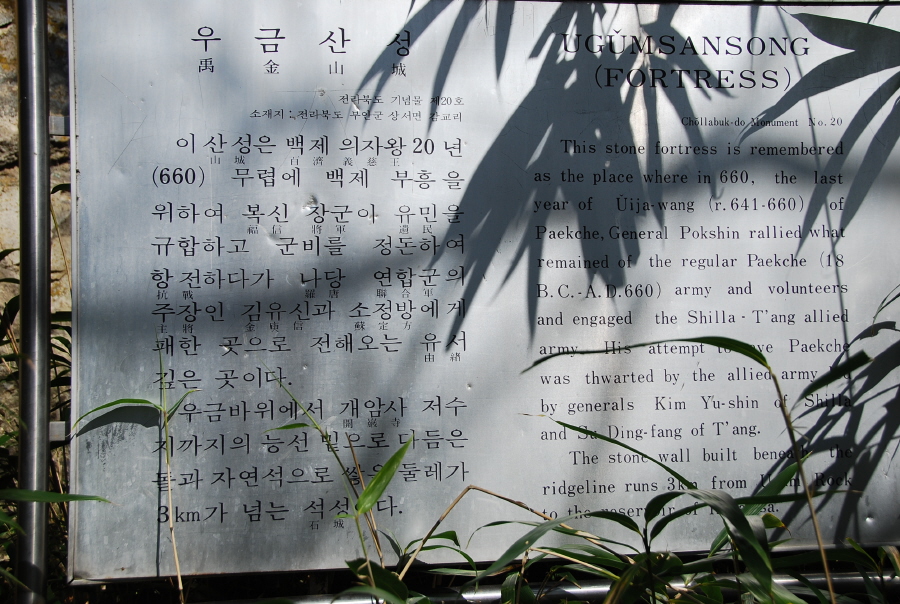 우 금 산 성
禹 金 山 城
전라북도 기념물 제20호
소재지 : 전라북도 부안군 상서면 감교리
이 산성은 백제 의자왕 20 년
山 城 百 濟 義 慈 王
(660) 무렵에 백제 부흥 을
위하여 복신 장군이 유민을
福 信 將 軍 遺 民
규합하고 군비를 정돈하여
항전하다가 나당 연합군의
抗 戰 羅 唐 聯 合 軍
주장인 김유신과 소정방에게
主 將 金 庾 信 蘇 定 方
패한 곳으로 전해오는 유서
由 緖
깊은 곳이다.
우금바위에서 개암사 저수
開 巖 寺
지까지의 능선 밑으로 다듬은
돌과 자연석으로 쌓은 둘레가
3km가 넘는 석성이다.
石 城
UGŬMSANSONG
(FORTRESS)
Chŏllabuk-do Monument No. 20
This stone fortress is remembered
as the place where in 660, the last
year of Ŭija-wang (r.641-660) of
Paekche, General Pokshin rallied what
remained of the regular Paekche (18
B.C.-A.D.660) army and volunteers
and engaged the Shilla - T'ang allied
army. His attempt to Paekche
was thwarted by the allied army
by generals Kim Yu-shin of Shilla
and Su Ding-fang of T'ang.
The stone wall built beneath the
ridgeline runs 3km from Rock
to the reservoir of